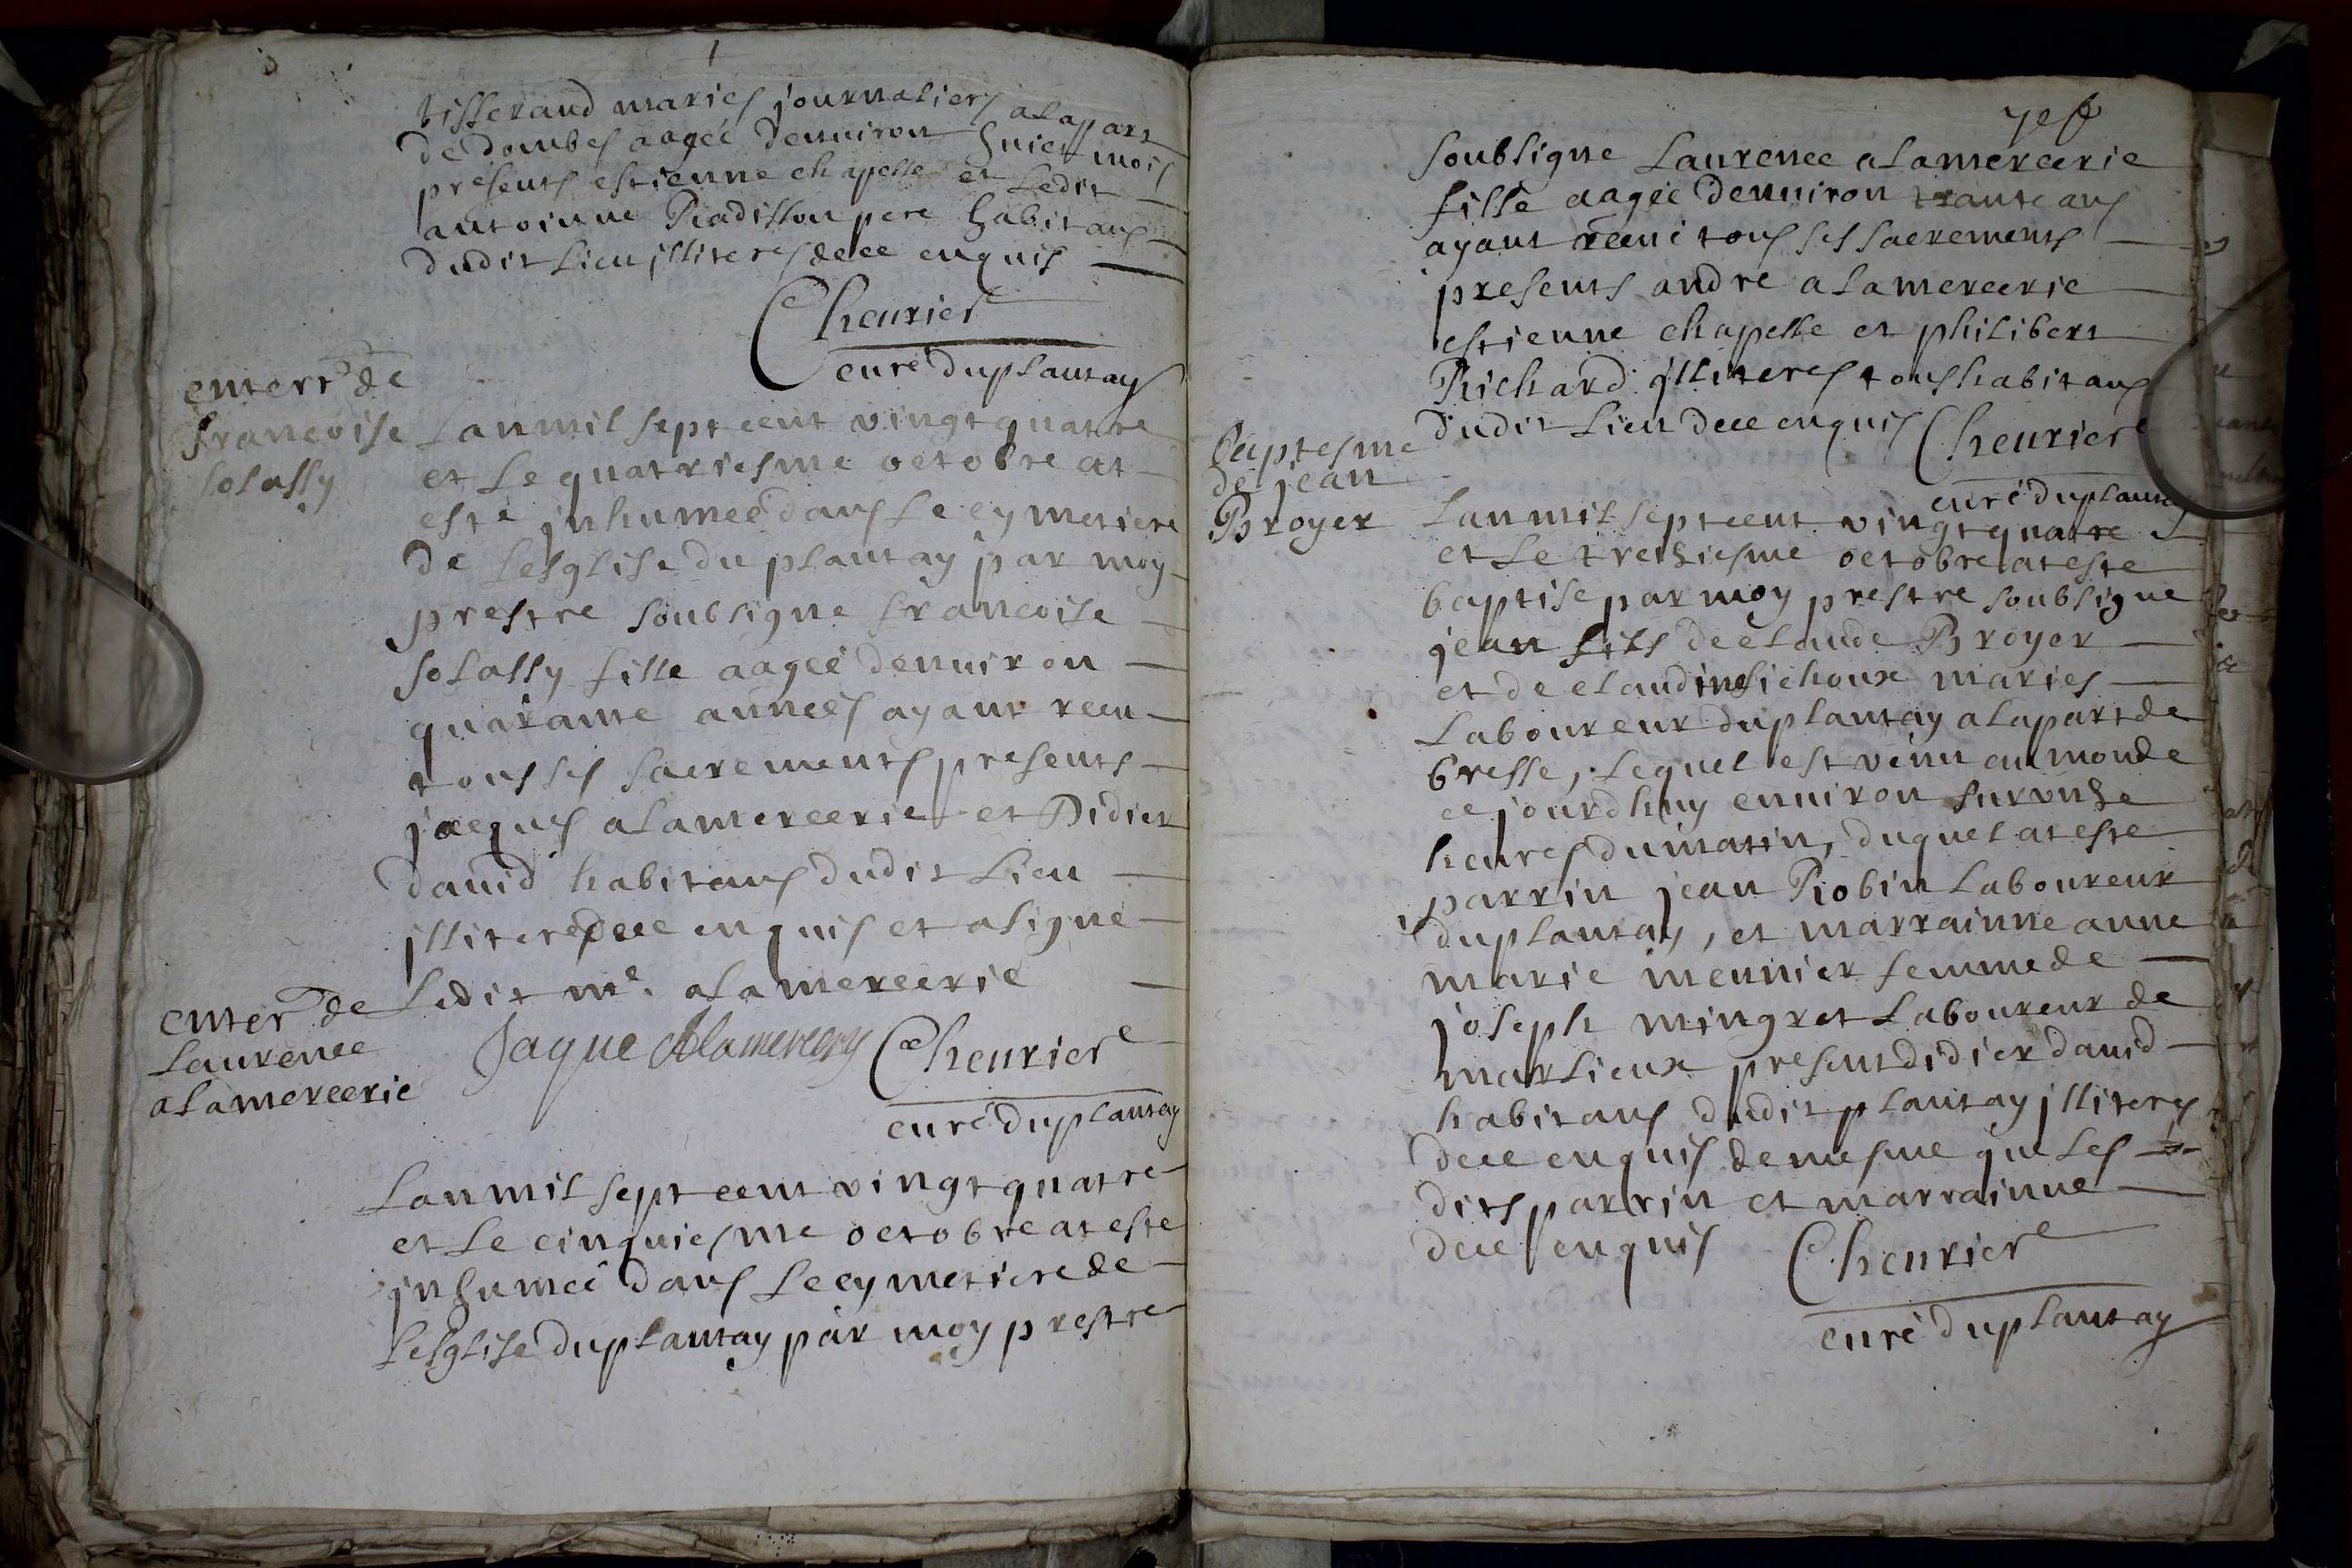 tisserand maries journaliers a la part
de dombes aagée denuiron huict mois
presents estienne chapelle et Ledit
antoinne Radisson pere habitans
dudit Lieu jlliteres de ce enquis
Cheurier
curé du plantay
enterr de
francoise
solassy
Lan mil sept cent vingt quatre
et Le quatriesme octobre at
esté jnhumeé dans Le cymetiere
de Lesglise du plantay par moy
prestre soubsigne francoise
solassy fille aageé denuiron
quarante anneés ayant receu
tous ses sacrements presents
jacques alamercerie et Didier
dauid habitans dudit Lieu
jlliteres de ce enquis et a signe
Ledit mᵉ. alamercerie
Jaque Alamercery Cheurier
curé du plantay
enter de
Laurence
alamercerie
Lan mil sept cent vingt quatre
et Le cinquiesme octobre at este
jnhumeé dans Le cymetiere de
Lesglise du plantay par moy prestre
soubsigne Laurence alamercerie
fille aageé denuiron trante ans
ayant receu tous ses sacrements
presents andre alamercerie
estienne chapelle et philibert
Richard jlliteres tous habitans
dudit Lieu de ce enquis Cheurier
curé du plantay
Baptesme
de jean
Broyer
Lan mil sept cent vingt quatre
et Le treiziesme octobre at este
baptise par moy prestre soubsigne
jean fils de claude Broyer
et de claudine sichoux maries
Laboureur du plantay a la part de
bresse, Lequel est venu au monde
ce jourdhuy enuiron sur onze
heures du matin, duquel at este
parrin jean Robin Laboureur
du plantay, et marrainne anne
marie meunier femme de
joseph mingret Laboureur de
marlieux present didier dauid
habitans dudit plantay jlliteres
de ce enquis de mesme que Les
dits parrin et marrainne
de ce enquis Cheurier
curé du plantay